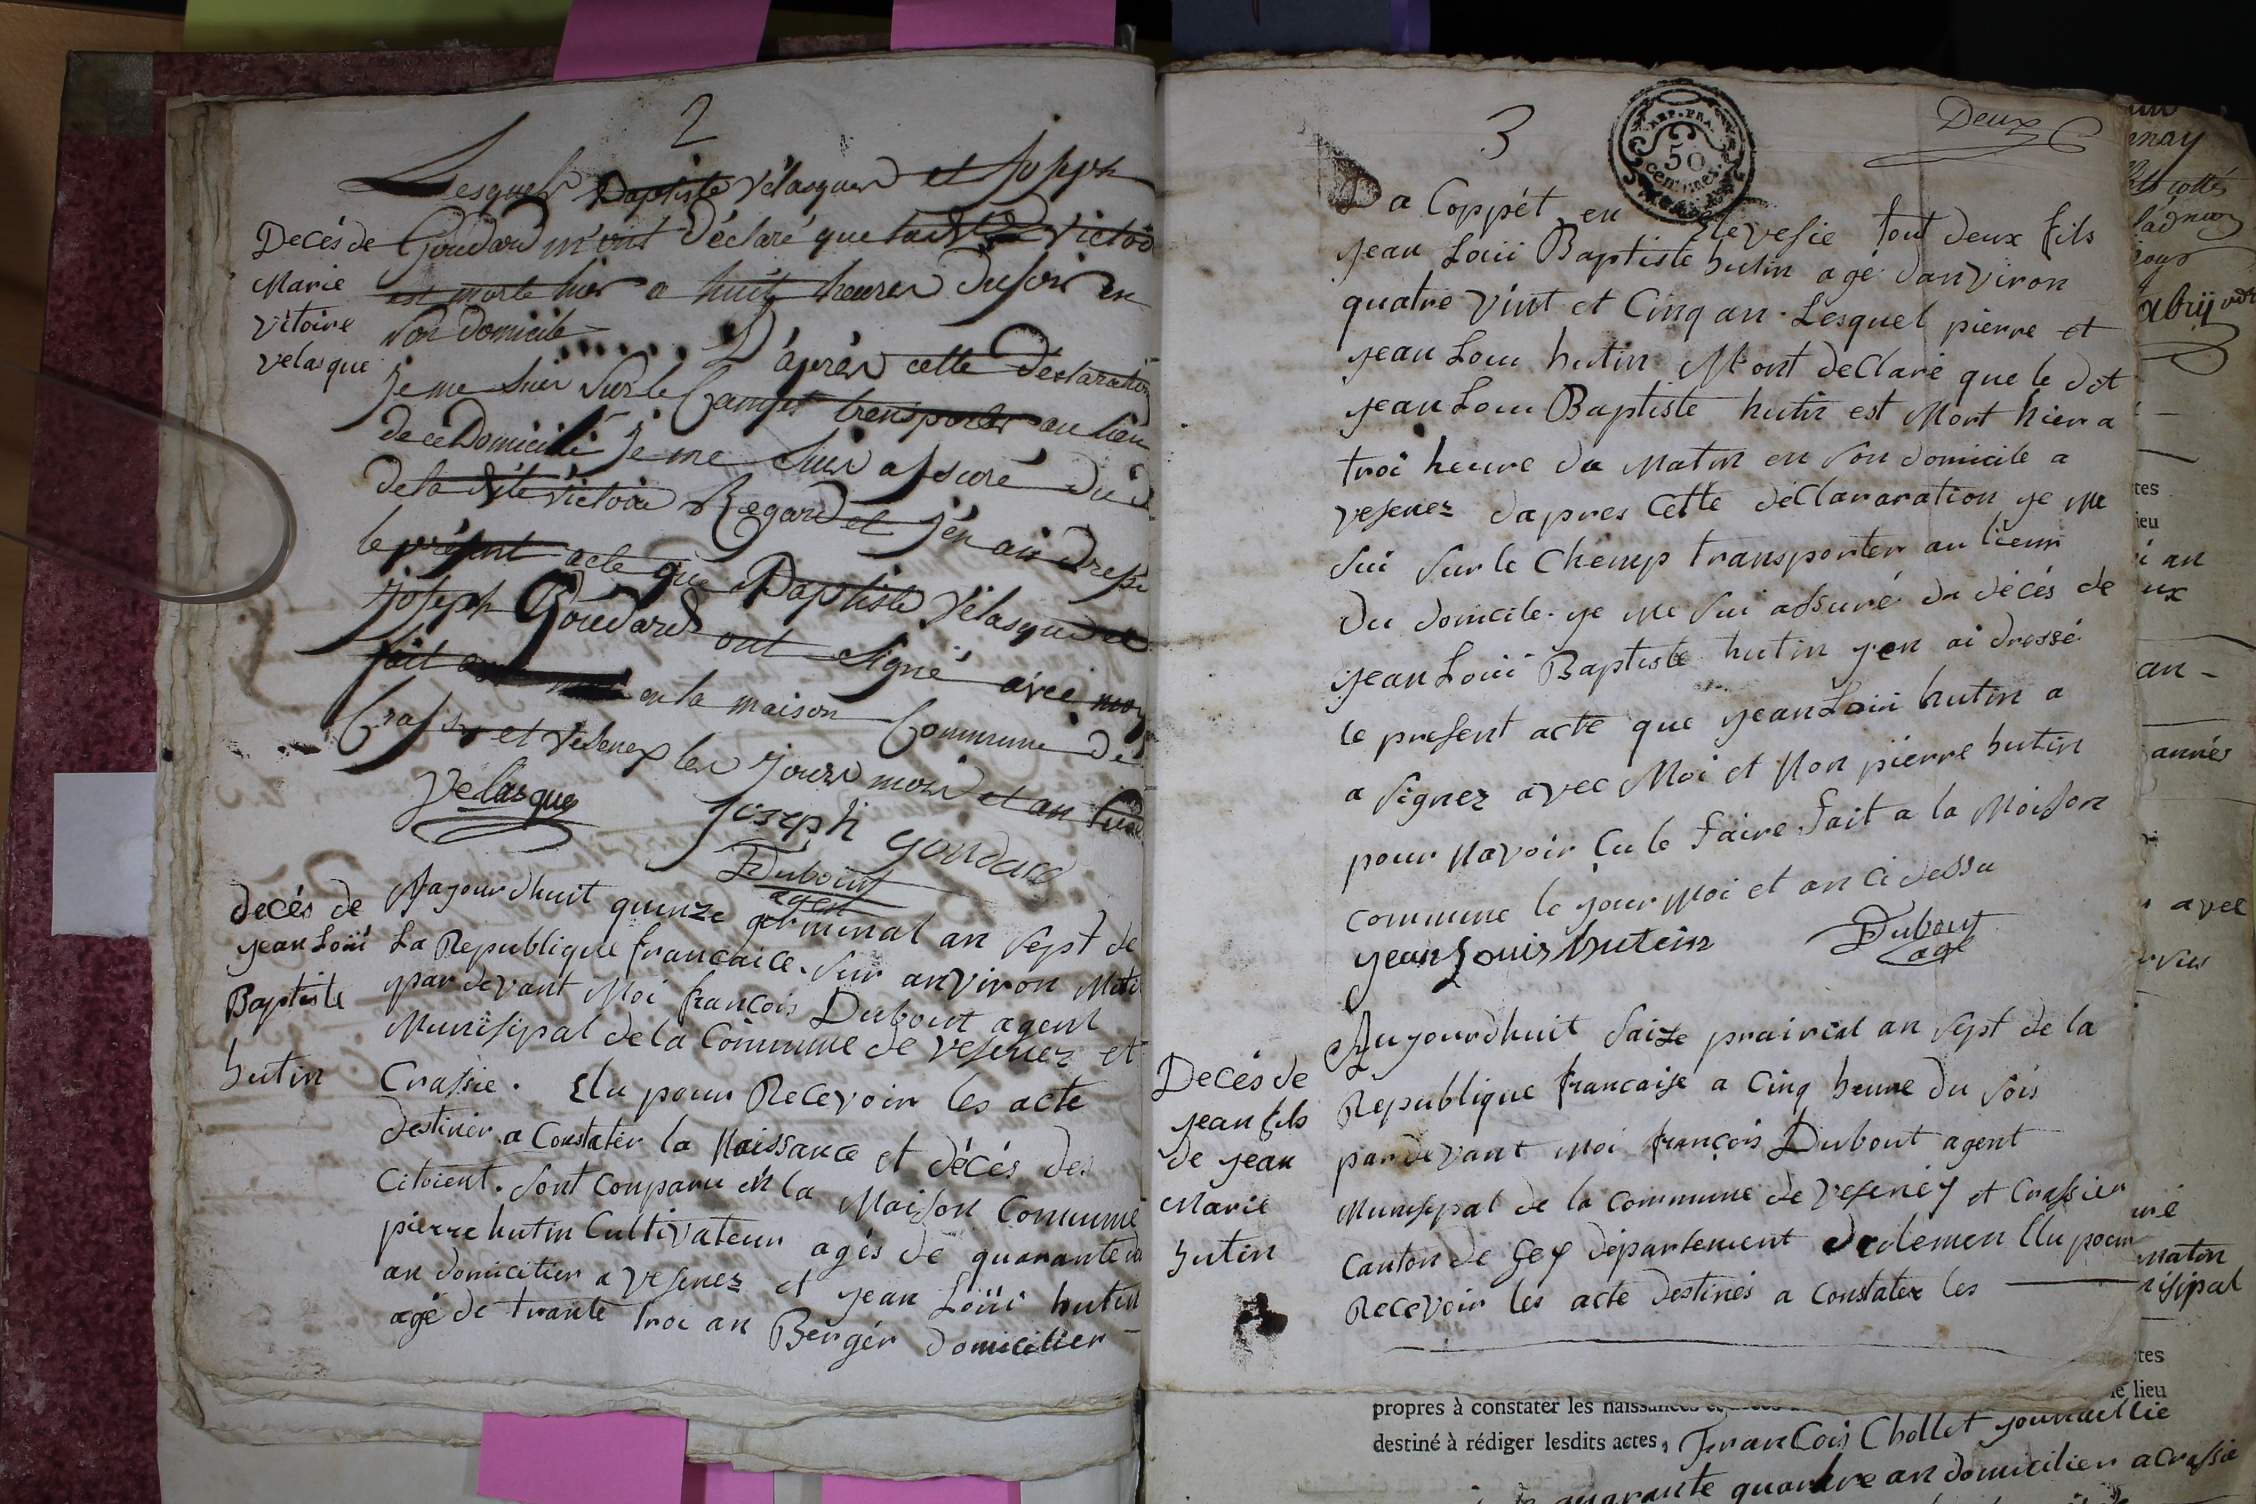 2
Lesquels Baptiste Vélasquer et Joseph
Goudard m'ont déclaré que ladite victoire
est morte hier a huit heures du soir en
son domicile
D'après cette déclaration
je me suis sur le Champs transporter au lieu
de ce Domicile je me suis assuré du
de la dite victoire Regard et j'en ai dressé
le présent acte que Baptiste Vélasque et
Joseph Goudard ont signé avec moy
fait en la maison Commune de
Crassy et Vesenex les jours mois et an
Decés de
Marie
Vitoire
Velasque
Velasque
Joseph Goudard
Dubout
agent
decés de
jean Loüi
Baptiste
hutin
Aajourdhuit quinze germinal an sept de
La Republique francaice. sur anviron
par devant Moi françois Dubout agent
Munisipal de la Commune de vesenez et
Crassie. Elu pour Recevoir les acte
destiner a Constater la Naissance et décés des
Citoient. sont Conparu en la Maison Commune
pierre hutin Cultivateur agés de quarante
an domicilier a vesenez et jean Loüi hutin
agé de trante troi an Bergér domicilier
3
Deux
REP. FRA.
50
centimes.
a Coppét en elevesie tout deux fils
jean Loüi Baptiste hutin agé danviron
quatre vint et Cinq an. Lesquel pierre et
jean Loui hutin Mont declaré que le dit
jean Loui Baptiste hutin est Mort hier a
troi heure du Matin en son domicile a
vesenez dapres cette déclararation je me
sui sur le Chemp transporter au lieur
du domicile. je me sui assuré du décés de
jean Loüi Baptiste hutin jen ai dressé
le present acte que jean Loüi hutin a
a signez avec Moi et Non pierre hutin
pour Navoir su le faire fait a la Moison
commune le jour Moi et an ci dessu
jean Louis hutin
Dubout
age
Decés de
jean fils
de jean
Marie
hutin
Aujourdhuit saize prairial an sept de la
Republique francaise a Cinq heure du sois
par devant moi françois Dubout agent
Munisipal de la commune de veseney et Crassier
Canton de Gex département Elu pour
Recevoir les acte destinés a constater les
tes
ieu
an
annés
avec
matin
nisipal
tes
lieu
propres à constater les naissances
destiné à rédiger lesdits actes, francois Chollet journaillie
quarante quandre an domicilier a Crassie